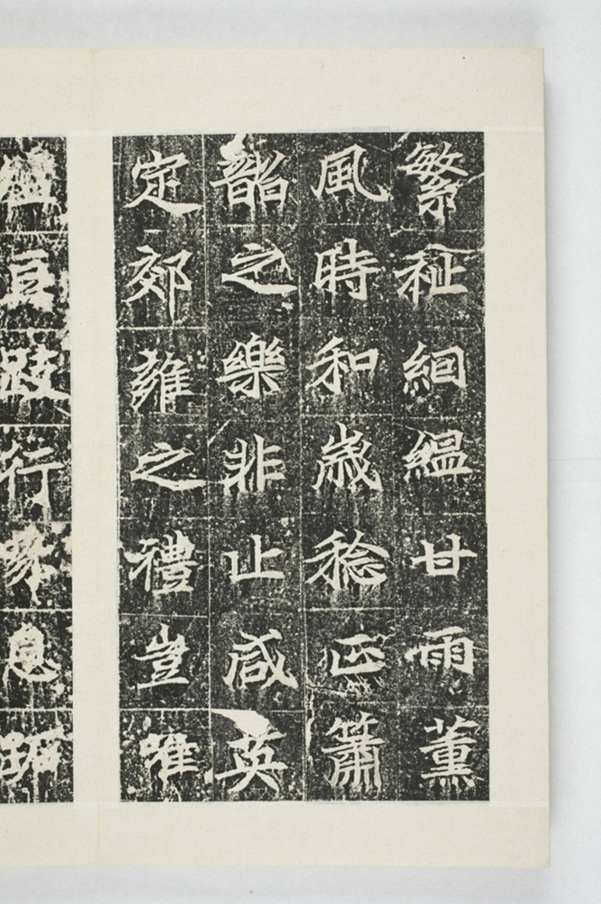 繁祉絪緼甘雨薰
風時和歲稔正簫
韶之樂非止咸英
定郊雍之禮豈唯
豆跂行喙息